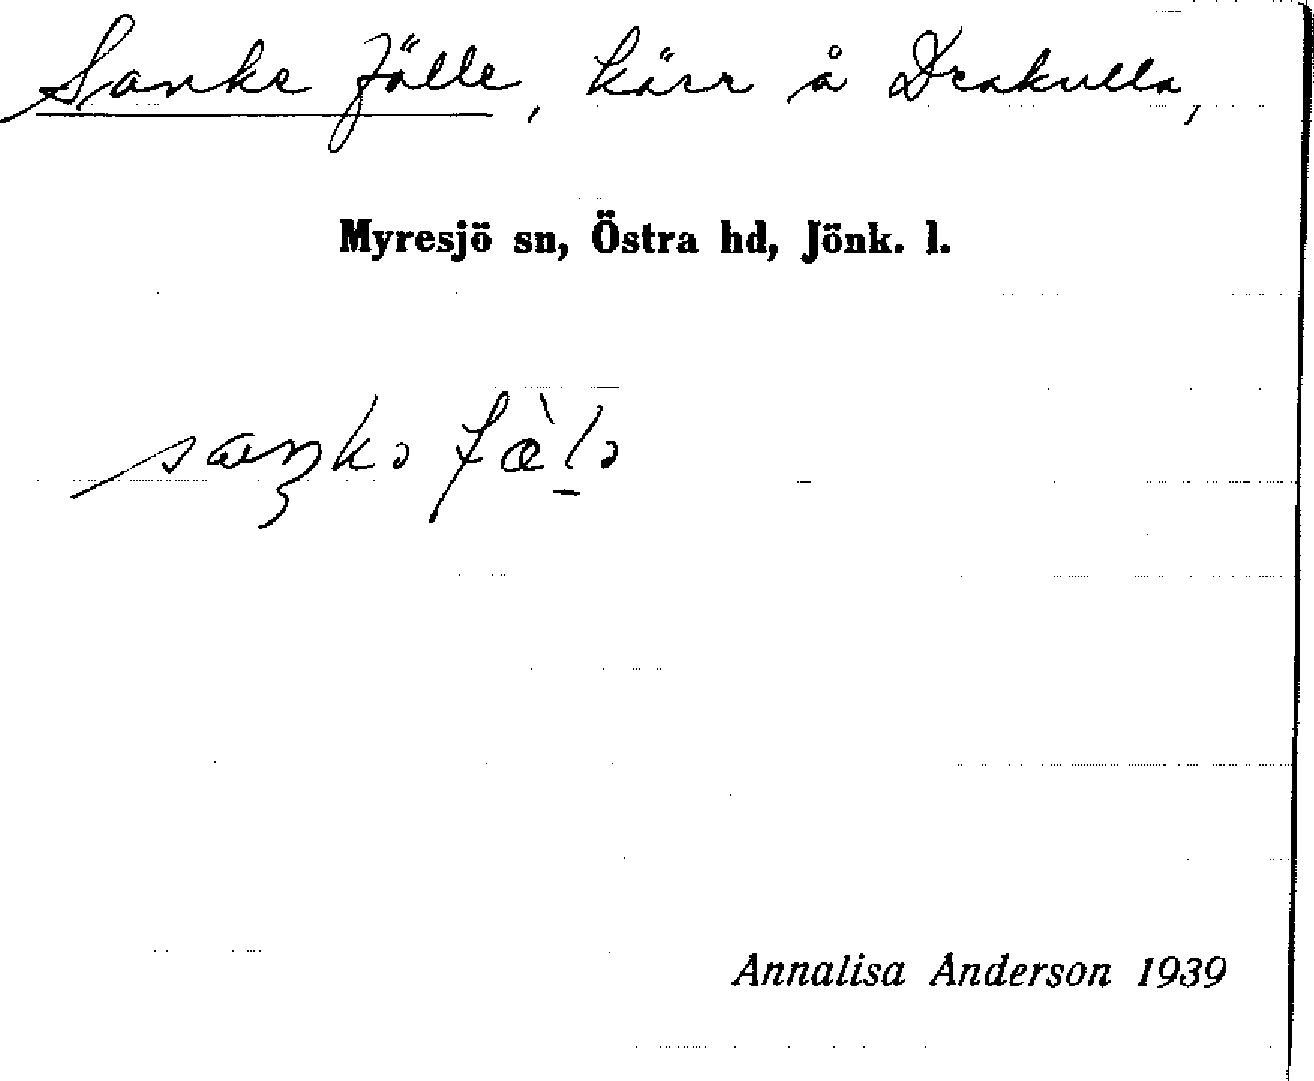 Sanke Fälle, kärr å Drakulla,
Myresjö sn, Östra hd, Jönk. l.
Annalisa Anderson 1939